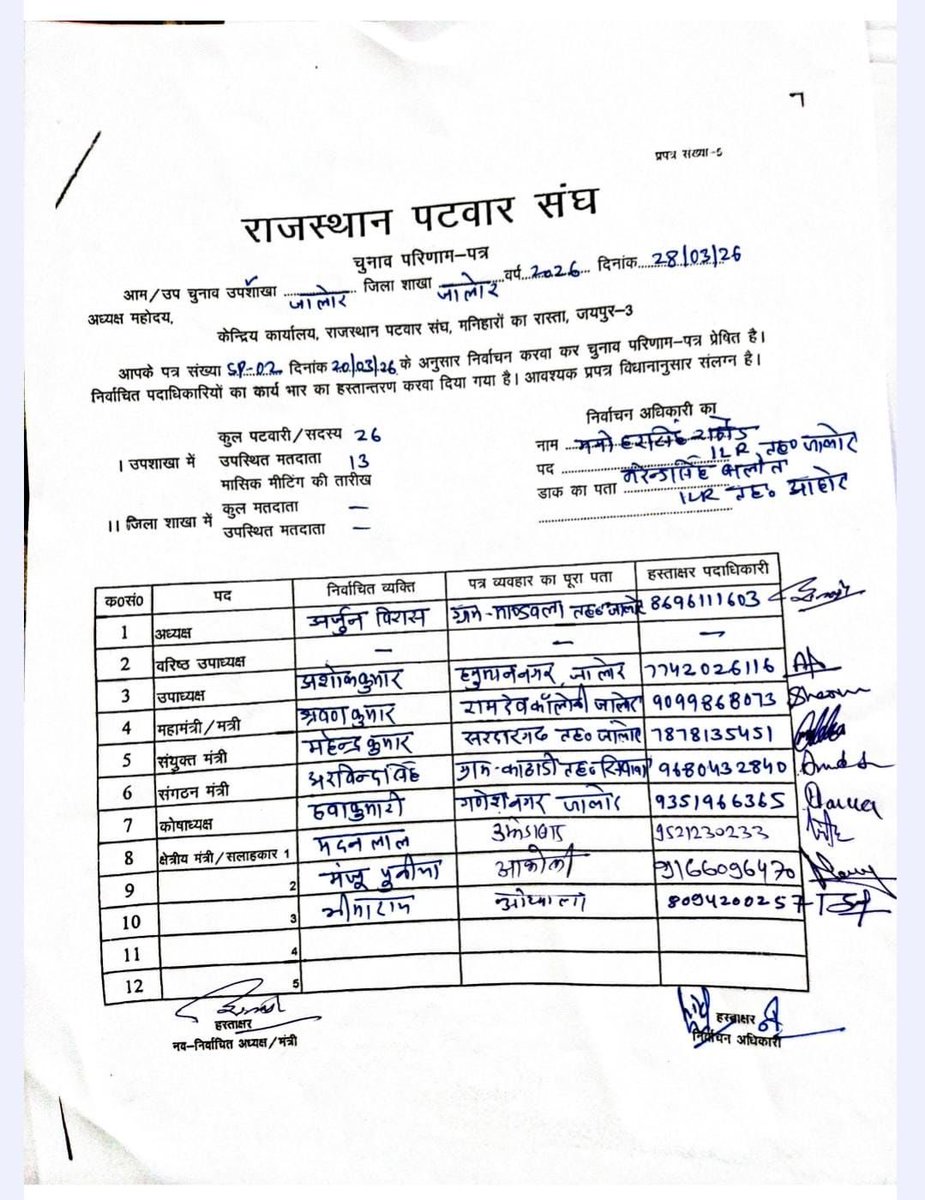 प्रपत्र संख्या-5
राजस्थान पटवार संघ
चुनाव परिणाम–पत्र
आम/उप चुनाव उपशाखा जालोर जिला शाखा जालोर वर्ष 2026 दिनांक 28/03/26
अध्यक्ष महोदय,
केन्द्रिय कार्यालय, राजस्थान पटवार संघ, मनिहारों का रास्ता, जयपुर–3
आपके पत्र संख्या SP-02 दिनांक 20/03/26 के अनुसार निर्वाचन करवा कर चुनाव परिणाम–पत्र प्रेषित है।
निर्वाचित पदाधिकारियों का कार्य भार का हस्तान्तरण करवा दिया गया है। आवश्यक प्रपत्र विधानानुसार संलग्न है।
निर्वाचन अधिकारी का
कुल पटवारी/सदस्य 26
I उपशाखा में उपस्थित मतदाता 13
मासिक मीटिंग की तारीख
कुल मतदाता –
II जिला शाखा में उपस्थित मतदाता –
नाम मनोहरसिंह राठौड
पद ILR, तह० जालोर
डाक का पता नरेन्द्रसिंह
ILR तह० आहोर
क०सं० पद निर्वाचित व्यक्ति पत्र व्यवहार का पूरा पता हस्ताक्षर पदाधिकारी
1 अध्यक्ष अर्जुन विरास ग्राम-माण्डवला तह० जालोर 8696111603
2 वरिष्ठ उपाध्यक्ष – – –
3 उपाध्यक्ष अशोक कुमार हनुमाननगर, जालोर 7742026116
4 महामंत्री/मत्री श्रवण कुमार रामदेव कॉलोनी जालोर 9099868073
5 संयुक्त मंत्री महेन्द्र कुमार सरदारगढ तह० जालोर 7878135451
6 संगठन मंत्री अरविन्दसिंह ग्राम-काठाडी तह० सिवाना 9680432840
7 कोषाध्यक्ष हवाकुमारी गणेशनगर जालोर 9351966365
8 क्षेत्रीय मंत्री/सलाहकार 1 मदन लाल 9521230233
9 2 मंजू पुनीया आकोली 9166096470
10 3 भीमाराम ओटवाला 8094200257
11 4
12 5
हस्ताक्षर
नव–निर्वाचित अध्यक्ष/मंत्री
हस्ताक्षर
निर्वाचन अधिकारी